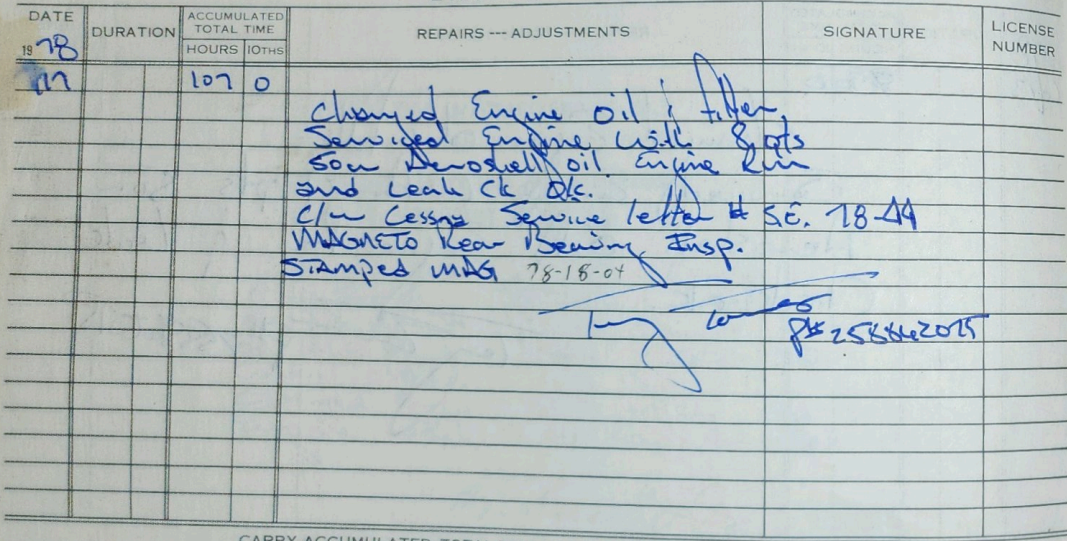 DATE
DURATION
ACCUMULATED TOTAL TIME
HOURS 10THS
REPAIRS --- ADJUSTMENTS
SIGNATURE
LICENSE NUMBER
1978
107 0
Changed Engine Oil & filter
Serviced Engine with 8 qts
50w Aeroshell oil. Engine Run
and Leak Ck Ok.
C/w Cessna Service letter # S.E. 78-44
MAGNETO Rear Bearing Insp.
STAMPED MAG 78-18-04